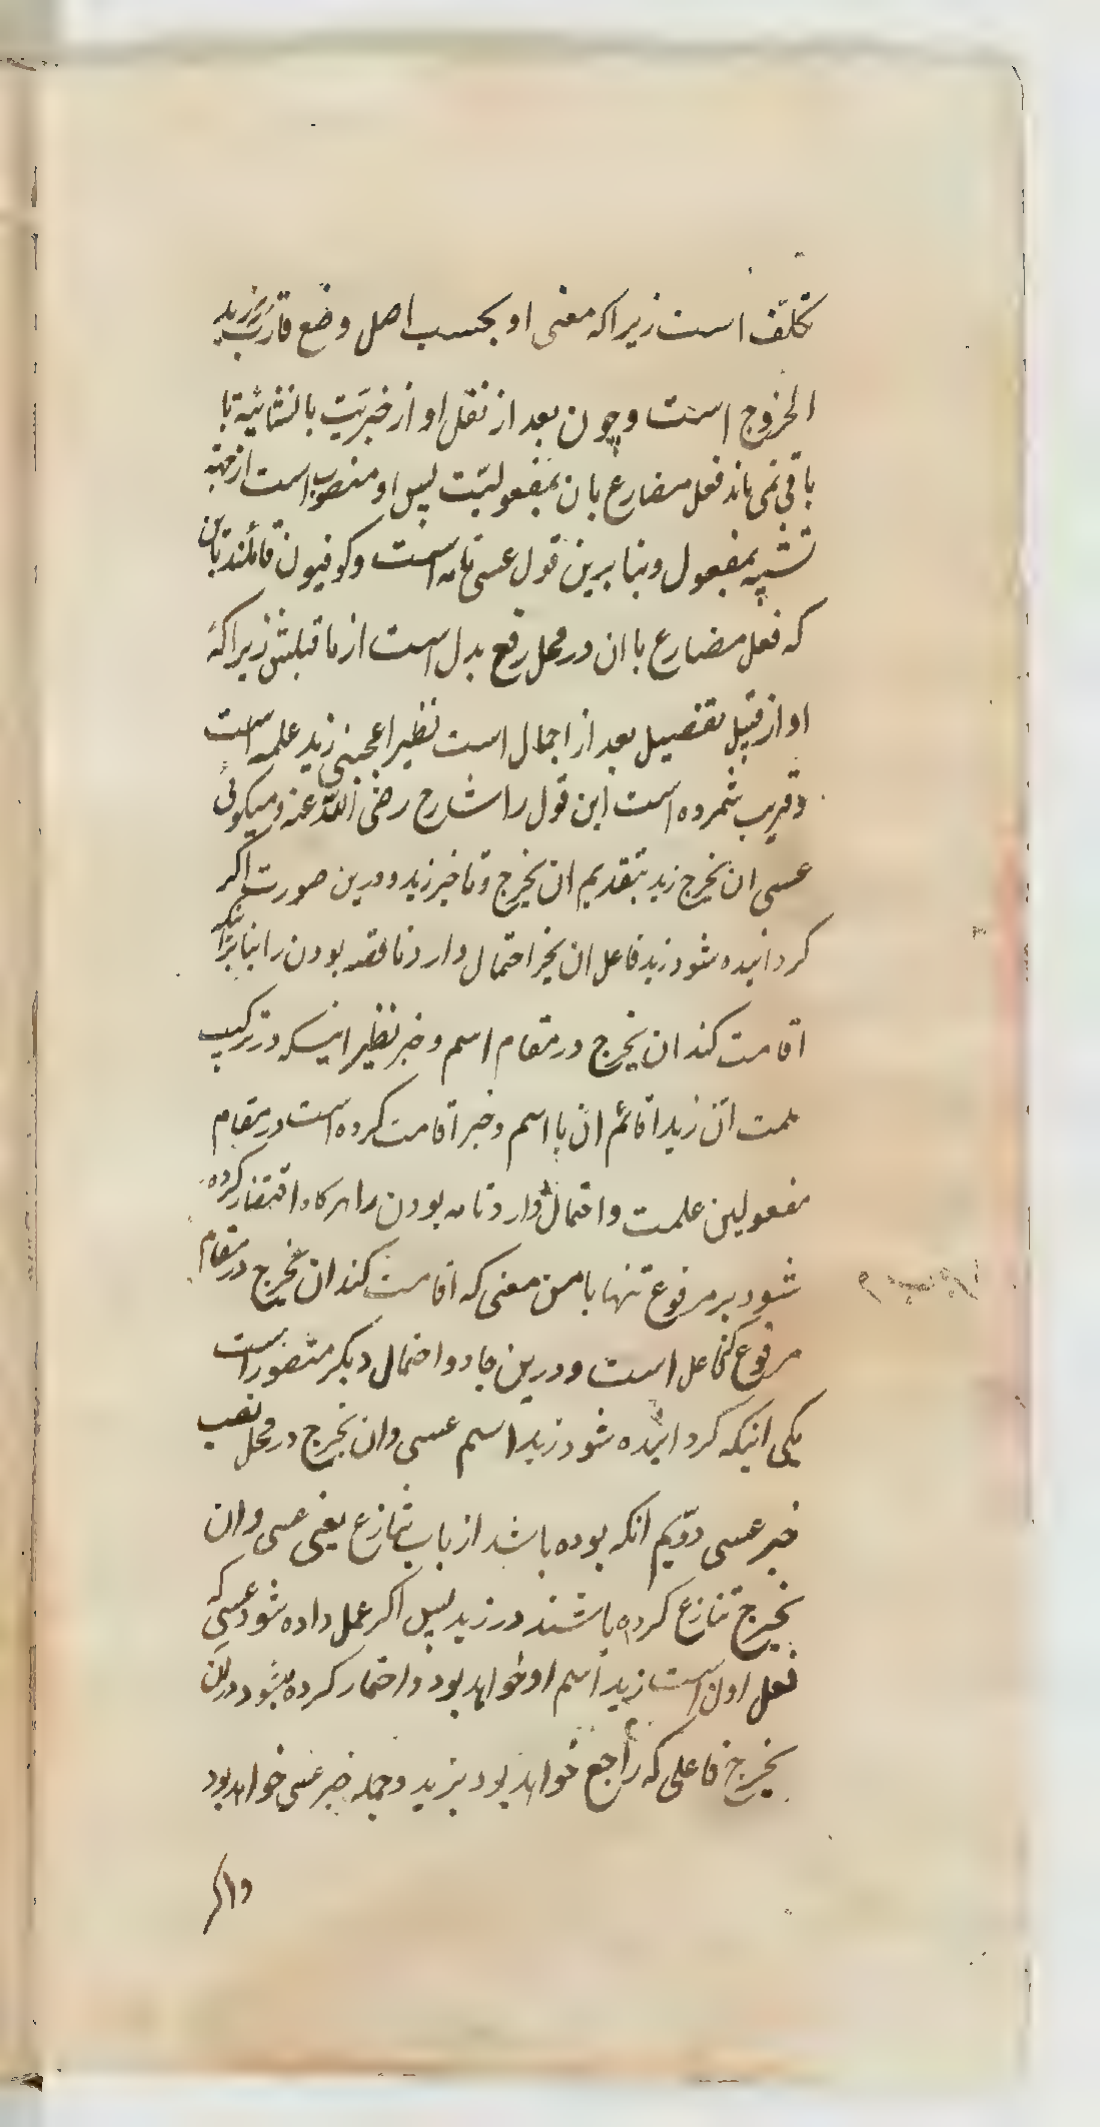 تکلّف است زیرا که معنی او بحسب اصل وضع قارب زید
الخروج است و چون بعد از نقل او از خبریّت بانشائیة با
باقی نمی ماند فعل مضارع بان بمفعولیّت پس او منصوب است از جهة
تشبیه بمفعول و بنا برین قول عسی تامه است و کوفیون قائلند باین
که فعل مضارع با ان در محل رفع بدل است از ما قبلش زیرا که
او از قبیل تفصیل بعد از اجمال است نظیر اعجبنی زید علمه است
و قریب شمرده است این قول را شارح رضی الله عنه و میکوئی
عسی ان یخرج زید بتقدیم ان یخرج و تاخیر زید و درین صورت اکر
کردانیده شود زید فاعل ان یخرج احتمال دارد ناقصه بودن را بنابر آنکه
اقامت کند ان یخرج در مقام اسم و خبر نظیر اینکه در ترکیب
علمت انّ زیدا قائم انّ با اسم و خبر اقامت کرده است در مقام
مفعولین علمت و احتمال دارد تامه بودن را هر کاه اقتصار کرده
شود بر مرفوع تنها باین معنی که اقامت کند ان یخرج در مقام
مرفوع که فاعل است و درین جا دو احتمال دیکر متصور است
یکی اینکه کردانیده شود زید اسم عسی و ان یخرج در محل نصب
خبر عسی دویم انکه بوده باشد از باب تنازع یعنی عسی و ان
یخرج تنازع کرده باشند در زید پس اکر عمل داده شود عسی که
فعل اول است زید اسم او خواهد بود و اضمار کرده میشود در ان
یخرج فاعلی که راجع خواهد بود بزید و جمله خبر عسی خواهد بود
واکر